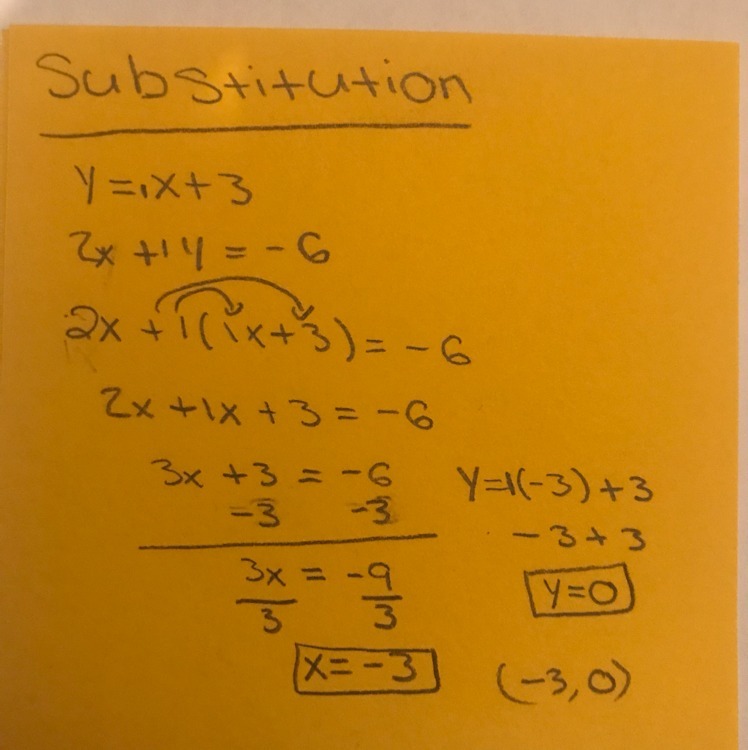 Substitution
y=1x+3
2x+1y=-6
2x+1(1x+3)=-6
2x+1x+3=-6
3x+3=-6
-3 -3
3x = -9
3 3
x=-3
y=1(-3)+3
-3+3
y=0
(-3,0)